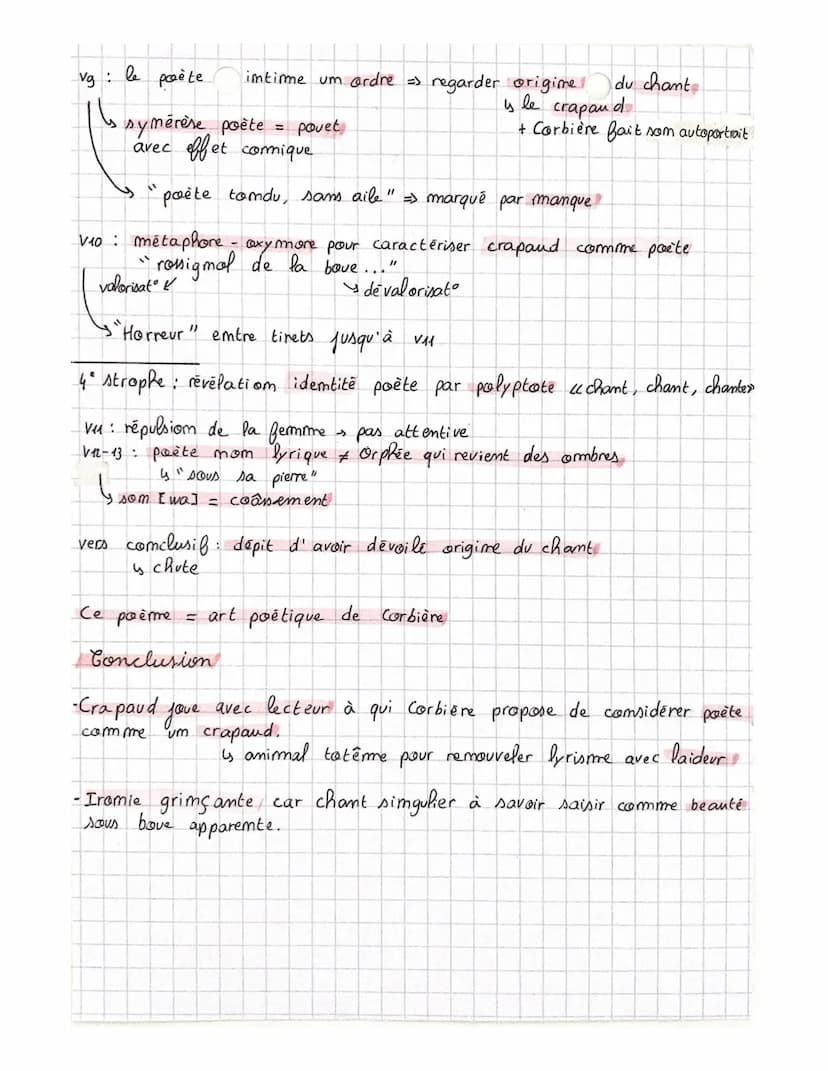 v9 : le poète intime un ordre => regarder origine du chant
↳ le crapaud
↳ synérèse poète = pouet + Corbière fait son autoportrait
avec effet comique
→ "poète tondu, sans aile" => marqué par manque
v10 : métaphore - oxymore pour caractériser crapaud comme poète
"rossignol de la boue..."
valorisat° ↙ ↘ dévalorisat°
→ "Horreur" entre tirets jusqu'à v11
4° strophe : révélation identité poète par polyptote «chant, chant, chante»
v11 : répulsion de la femme → pas attentive
v12-13 : poète non lyrique ≠ Orphée qui revient des ombres
↳ "sous sa pierre"
↳ son [wa] = coâssement
vers conclusif : dépit d'avoir dévoilé origine du chant
↳ chute
Ce poème = art poétique de Corbière
Conclusion
-Crapaud joue avec lecteur à qui Corbière propose de considérer poète
comme un crapaud.
↳ animal totême pour renouveler lyrisme avec laideur
- Ironie grinçante car chant singulier à savoir saisir comme beauté
sous boue apparente.